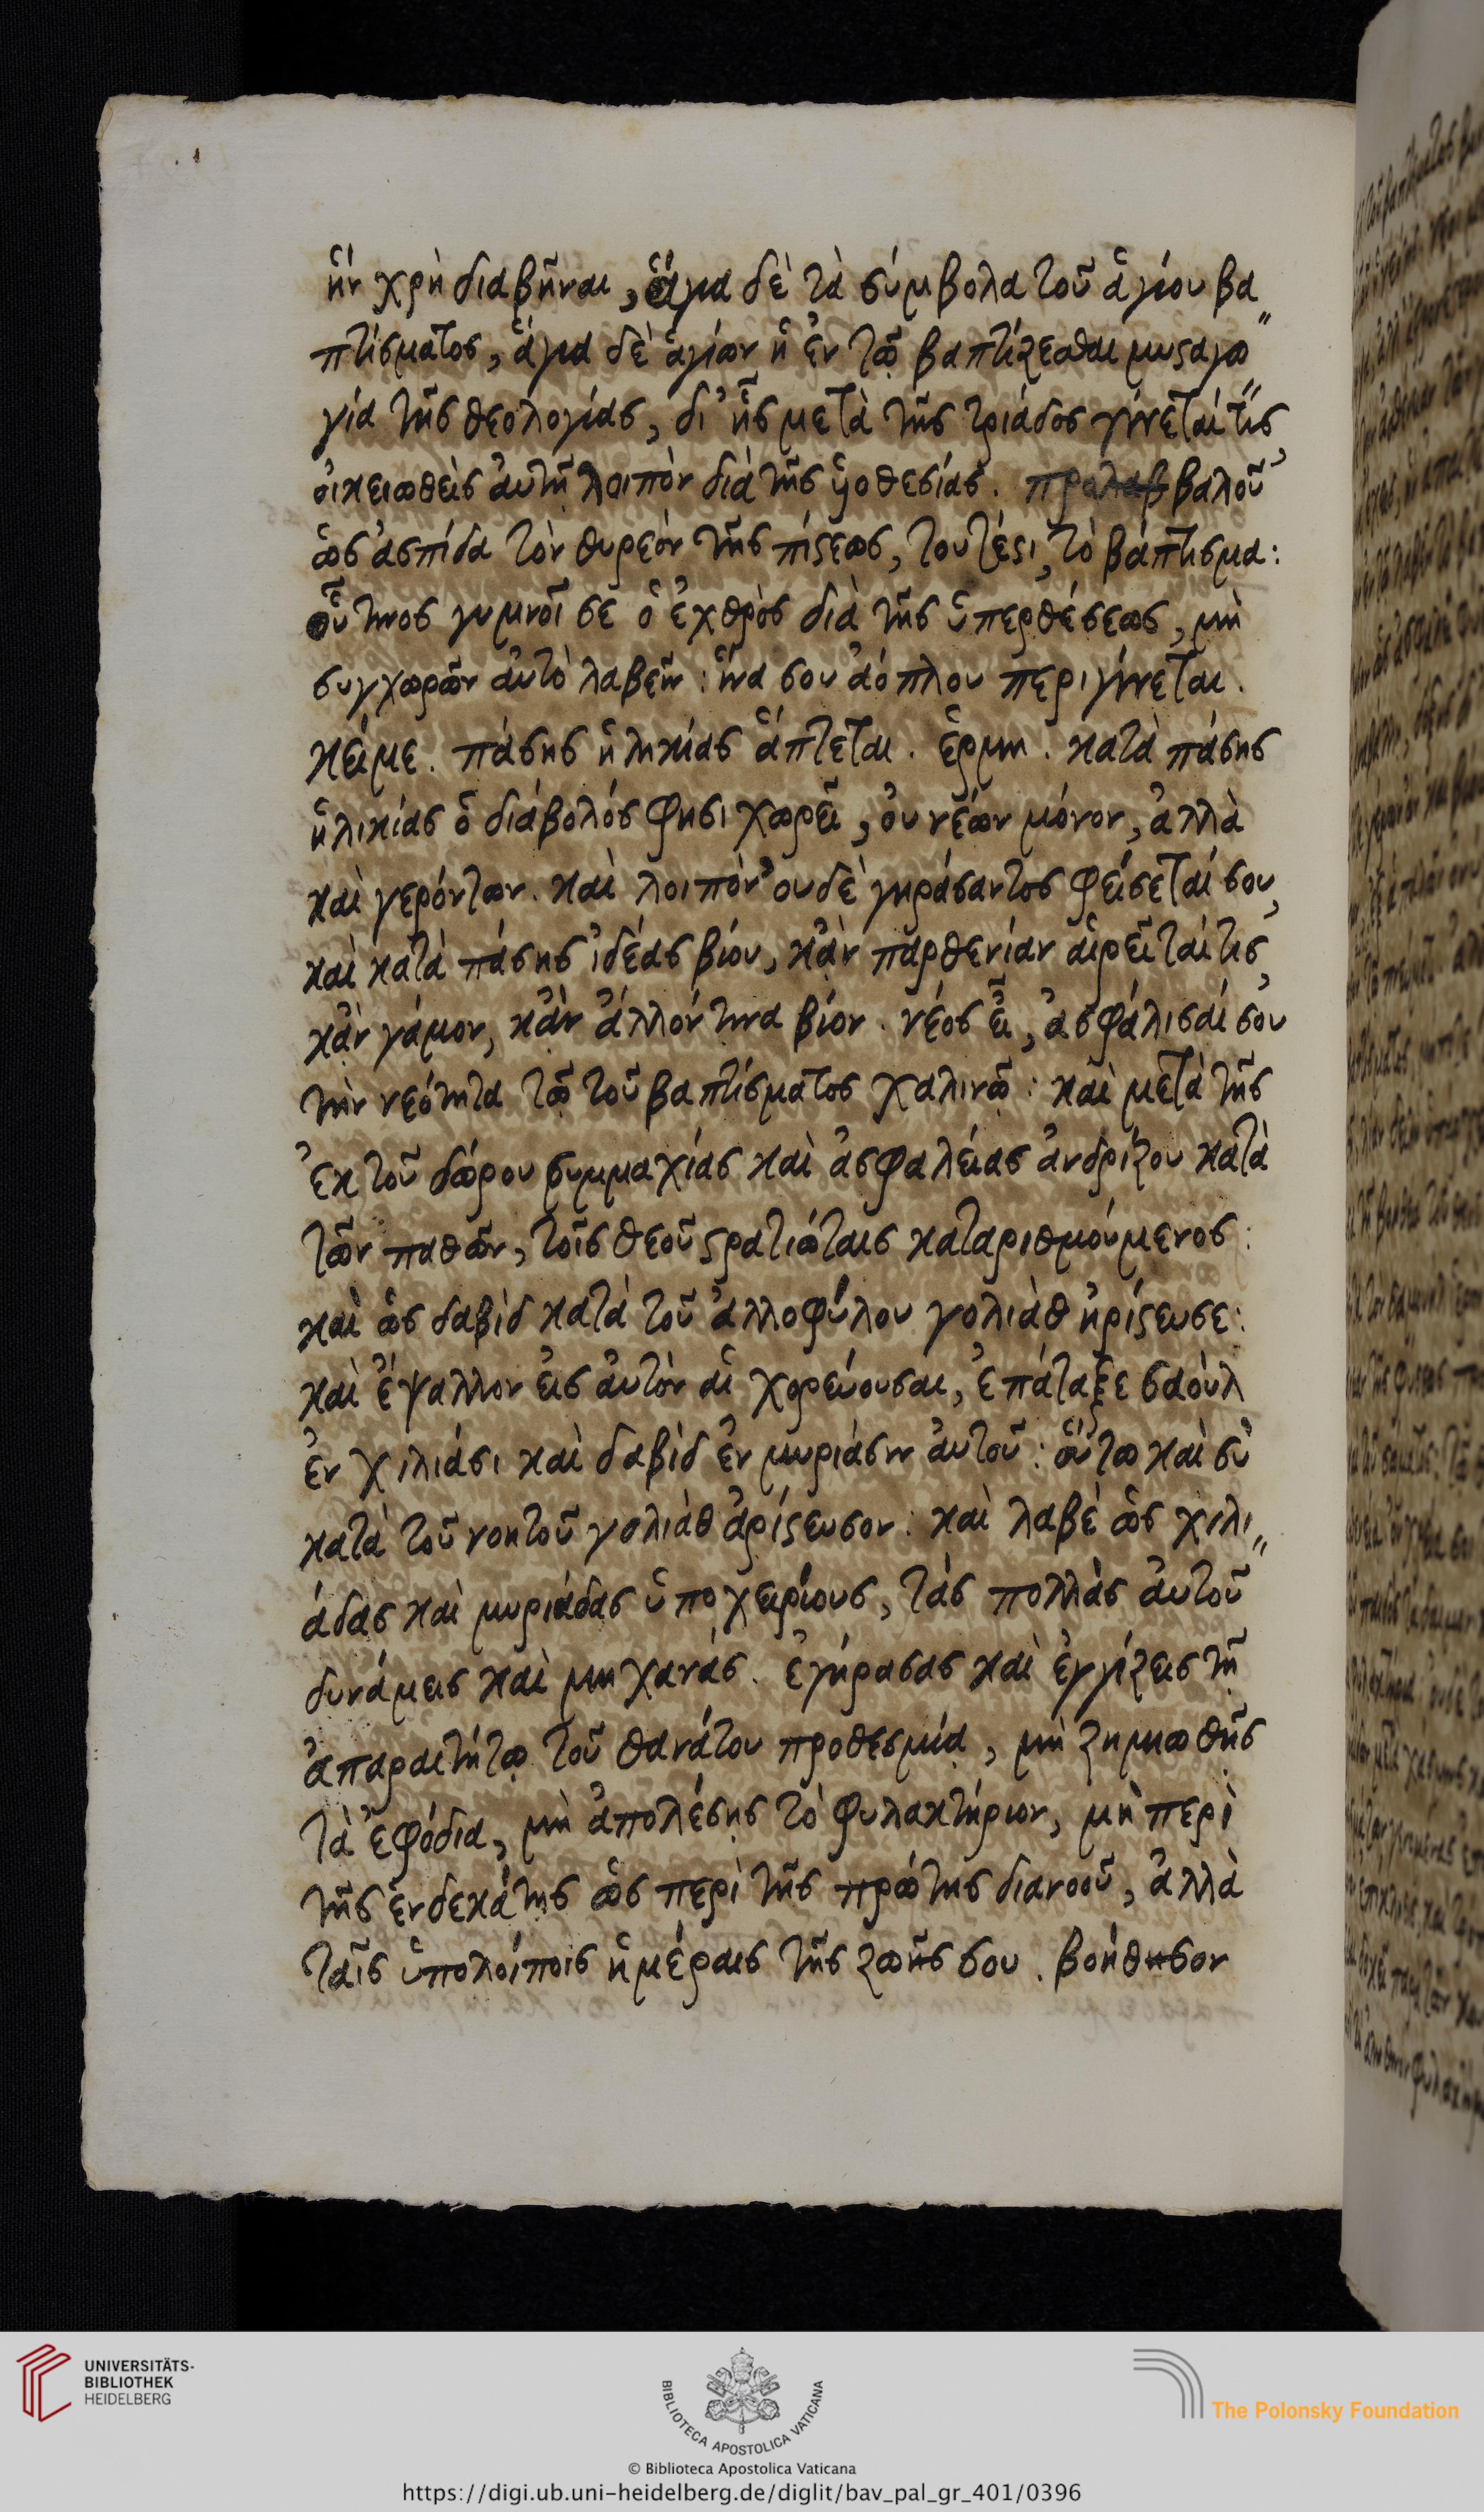 ἣν χρὴ διαβῆναι, ἅγια δὲ τὰ σύμβολα τοῦ ἁγίου βα
πτίσματος, ἅγια δὲ ἁγίων ἡ ἐν τῶ βαπτίζεσθαι μυσταγω
γία τῆς θεολογίας, δι' ἧς μετὰ τῆς τριάδος γίνεταί τις
οἰκειωθεὶς αὐτῆ λοιπὸν διὰ τῆς ὑοθεσίας. προβαλοῦ
ὡς ἀσπίδα τὸν θυρεὸν τῆς πίστεως, τουτέστι τὸ βάπτισμα:
οὗ τινος γυμνοῖ σε ὁ ἐχθρὸς διὰ τῆς ὑπερθέσεως, μὴ
συγχωρῶν αὐτὸ λαβεῖν: ἵνα σου ἀόπλου περιγίνεται.
κείμε. πάσης ἡλικίας ἅπτεται. ἑρμη. κατὰ πάσης
ἡλικίας ὁ διάβολός φησι χωρεῖ, οὐ νέων μόνον, ἀλλὰ
καὶ γερόντων. καὶ λοιπὸν οὐδὲ γηράσαντος φείσεταί σου,
καὶ κατὰ πάσης ἰδέας βίου, κἂν παρθενίαν αἱρεῖταί τις,
κἂν γάμον, κἂν ἄλλόν τινα βίον. νέος εἶ, ἀσφάλισαί σου
τὴν νεότητα τῶ τοῦ βαπτίσματος χαλινῶ: καὶ μετὰ τῆς
ἐκ τοῦ δώρου συμμαχίας καὶ ἀσφαλείας ἀνδρίζου κατὰ
τῶν παθῶν, τοῖς θεοῦ στρατιώταις καταριθμούμενος:
καὶ ὡς δαβὶδ κατὰ τοῦ ἀλλοφύλου γολιὰθ ἠρίστευσε:
καὶ ἔψαλλον εἰς αὐτὸν αἱ χορεύουσαι, ἐπάταξε σαοὺλ
ἐν χιλιάσι καὶ δαβὶδ ἐν μυριάσιν αὐτοῦ: οὕτω καὶ σὺ
κατὰ τοῦ νοητοῦ γολιὰθ ἀρίστευσον: καὶ λαβὲ ὡς χιλι
άδας καὶ μυριάδας ὑποχειρίους, τὰς πολλὰς αὐτοῦ
δυνάμεις καὶ μηχανάς. ἐγήρασας καὶ ἐγγίζεις τῆ
ἀπαραιτήτω τοῦ θανάτου προθεσμία, μὴ ζημιωθῆς
τὰ ἐφόδια, μὴ ἀπολέσης τὸ φυλακτήριον, μὴ περὶ
τῆς ἑνδεκάτης ὡς περὶ τῆς πρώτης διανοοῦ, ἀλλὰ
ταῖς ὑπολοίποις ἡμέραις τῆς ζωῆς σου. βοήθησον
UNIVERSITÄTS-
BIBLIOTHEK
HEIDELBERG
BIBLIOTECA APOSTOLICA VATICANA
The Polonsky Foundation
© Biblioteca Apostolica Vaticana
https://digi.ub.uni-heidelberg.de/diglit/bav_pal_gr_401/0396